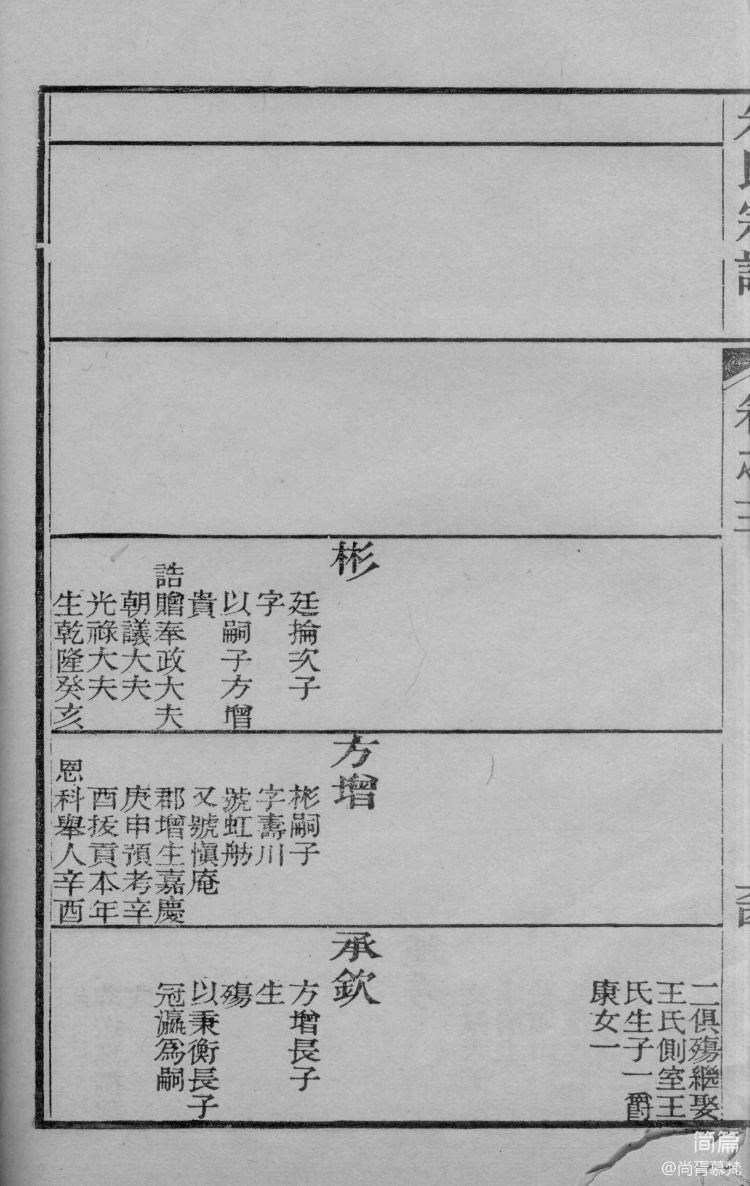 氏宗譜
卷之
彬
廷掄次子
字
以嗣子方增
貴
誥贈奉政大夫
朝議大夫
光祿大夫
生乾隆癸亥
方增
彬嗣子
字壽川
號虹舫
又號愼庵
郡增生嘉慶
庚申預考辛
酉拔貢本年
恩科舉人辛酉
二俱殤繼娶
王氏側室王
氏生子一爵
康女一
承欽
方增長子
生
殤
以秉衡長子
冠瀛爲嗣
简篇
@尚胥慕梵